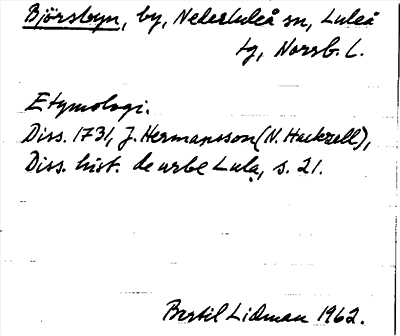 Björsbyn, by, Nederluleå sn, Luleå
tg, Norrb. L.
Etymologi.
Diss. 1731, J. Hermansson (N. Hackzell),
Diss. hist. de urbe Lula, s. 21.
Bertil Lidman 1962.